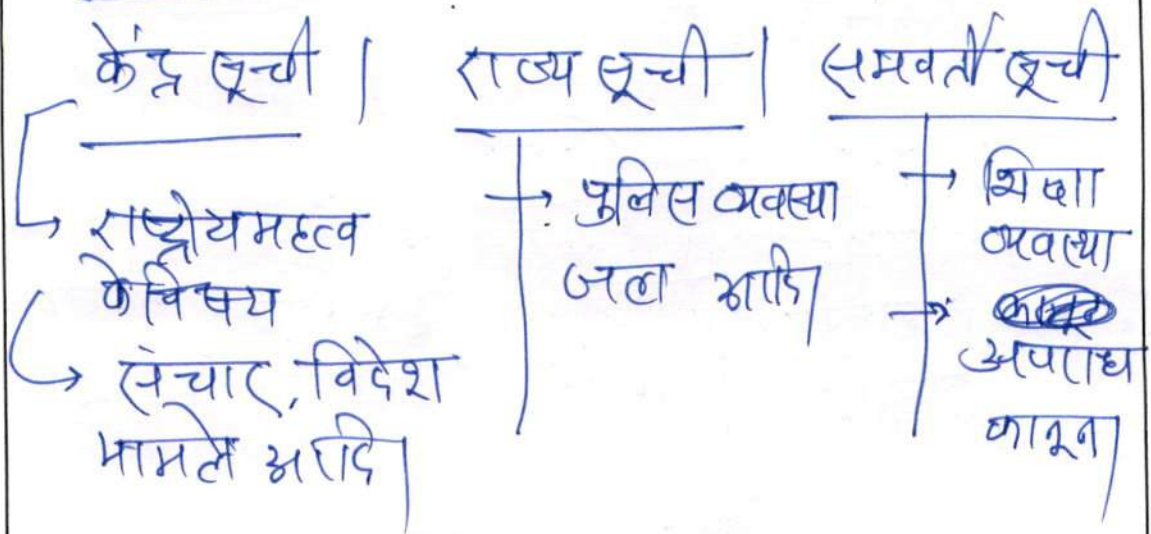 केंद्र सूची | राज्य सूची | समवर्ती सूची
→ राष्ट्रीय महत्व
के विषय
→ संचार, विदेश
मामले आदि|
→ पुलिस व्यवस्था
जल आदि|
→ शिक्षा
व्यवस्था
→
अपराध
कानून|